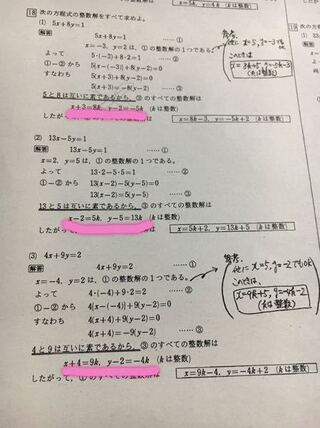 18 次の方程式の整数解をすべて求めよ。
(1) 5x+8y=1
解答 5x+8y=1 ……①
x=-3, y=2は, ①の整数解の1つである。
よって 5・(-3)+8・2=1 ……②
①-②から 5{x-(-3)}+8(y-2)=0
すなわち 5(x+3)+8(y-2)=0
5(x+3)=-8(y-2) ……③
5と8は互いに素であるから, ③のすべての整数解は
x+3=8k, y-2=-5k (kは整数)
したが x=8k-3, y=-5k+2 (kは整数)
参考
他に x=5, y=-3
このときは
(kは整数)
(2) 13x-5y=1
解答 13x-5y=1 ……①
x=2, y=5は, ①の整数解の1つである。
よって 13・2-5・5=1 ……②
①-②から 13(x-2)-5(y-5)=0
13(x-2)=5(y-5) ……③
13と5は互いに素であるから, ③のすべての整数解は
x-2=5k, y-5=13k (kは整数)
したがっ x=5k+2, y=13k+5 (kは整数)
(3) 4x+9y=2
解答 4x+9y=2 ……①
x=-4, y=2は, ①の整数解の1つである。
よって 4・(-4)+9・2=2 ……②
①-②から 4{x-(-4)}+9(y-2)=0
すなわち 4(x+4)+9(y-2)=0
4(x+4)=-9(y-2) ……③
4と9は互いに素であるから, ③のすべての整数解は
x+4=9k, y-2=-4k (kは整数)
したがって, ①のすべての整数解は x=9k-4, y=-4k+2 (kは整数)
参考
他に x=5, y=-2でもOK
このときは、
x=9k+5, y=-4k-2
(kは整数)